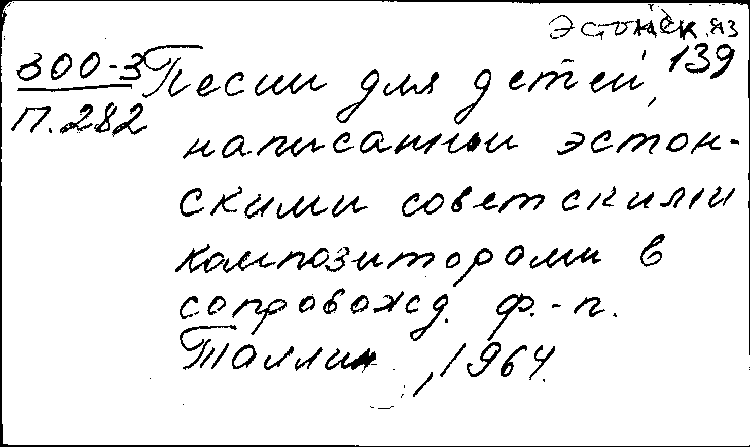 Эстонск. яз
139
300-3
П.282
Песни для детей,
написанные эстон-
скими советскими
композиторами в
сопровожд. ф.-п.
Таллин, 1964.